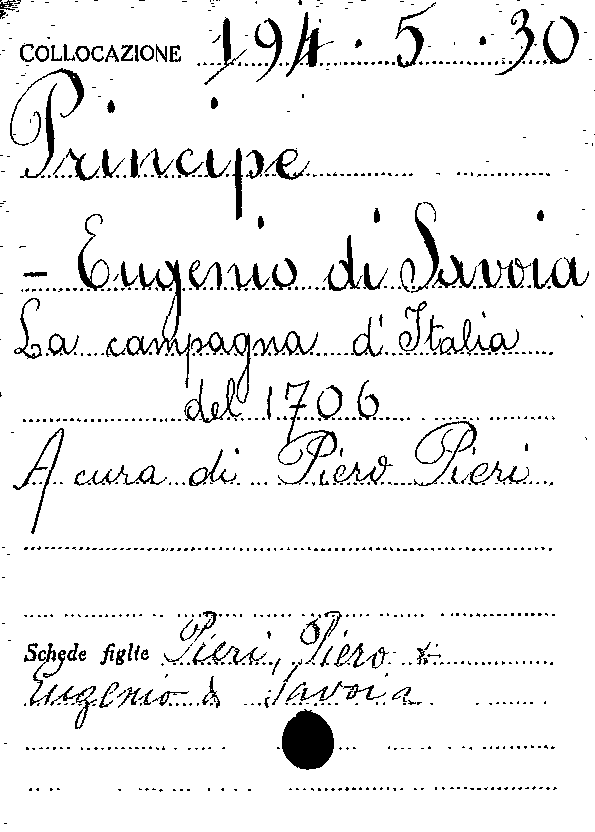 COLLOCAZIONE 194.5.30
Principe
- Eugenio di Savoia
La campagna d'Italia
del 1706
A cura di Piero Pieri
Schede figlie Pieri, Piero
Eugenio di Savoia